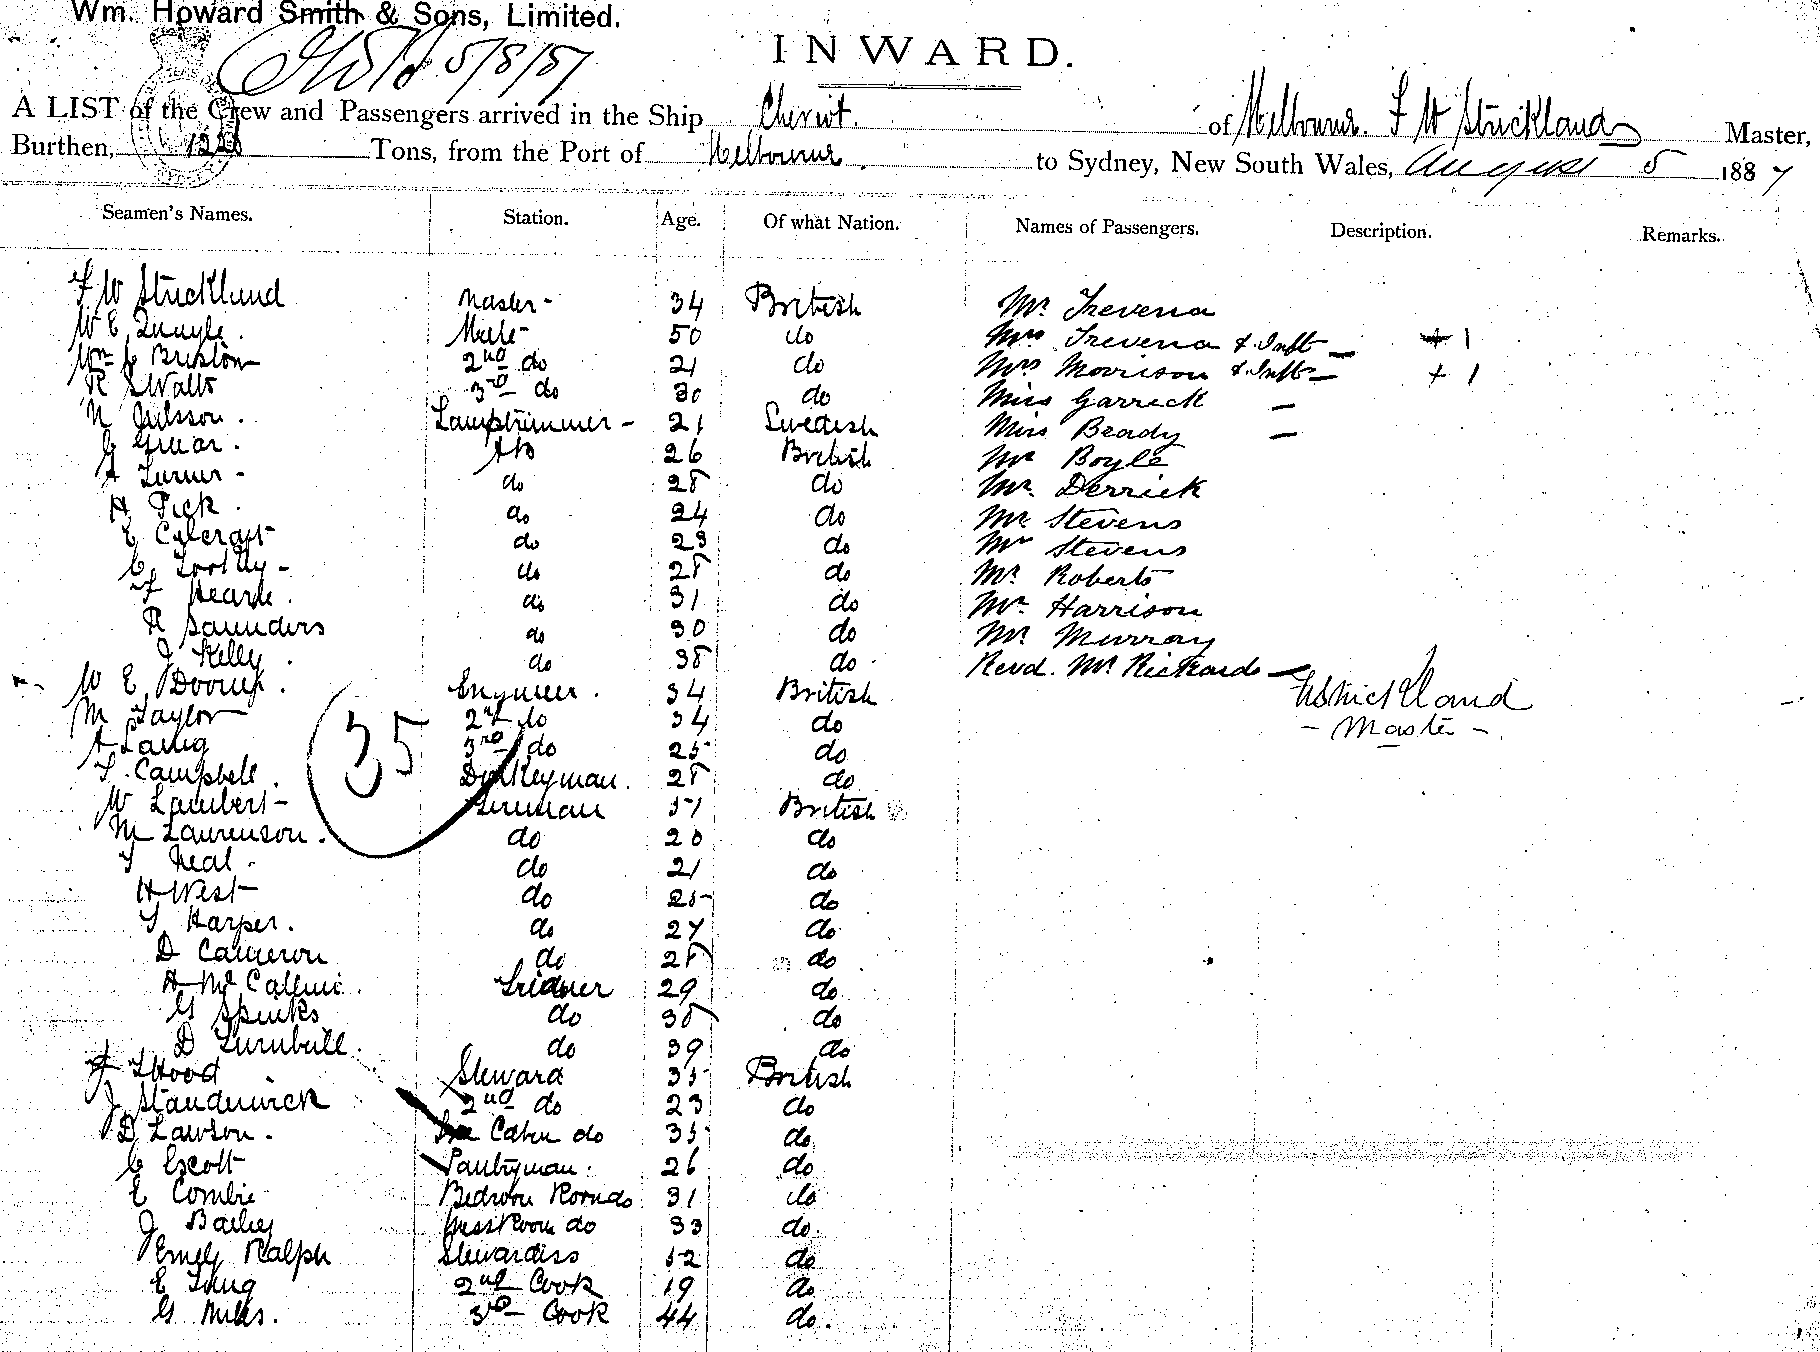 Wm. Howard Smith & Sons, Limited.
5/8/87
INWARD.
A LIST of the Crew and Passengers arrived in the Ship Cheviot. of Melbourne. F W Strickland Master,
Burthen, 1226 Tons, from the Port of Melbourne to Sydney, New South Wales, August 5 1887
Seamen's Names. Station. Age. Of what Nation. Names of Passengers. Description. Remarks.
F W Strickland Master 34 British Mr. Trevena
W E Quayle. Mate 50 do Mrs Trevena & Inft — + 1
Wm C Bristow 2nd do 21 do Mrs Morrison & Inft — + 1
R S Watts 3rd do 30 do Miss Garrick —
N Nilsson. Lamptrimmer - 21 Swedish Miss Beady —
G Grear. AB 26 British Mr Boyle
A Turner - do 28 do Mr. Derrick
H Pick. do 24 do Mr. Stevens
E Calcraft do 23 do Mr Stevens
C do 28 do Mr. Roberts
F Hearle. do 31 do Mr. Harrison
R Saunders do 30 do Mr. Murray
J Kelly. do 38 do Revd. Mr. Rickards —
W E. Engineer. 34 British FWStrickland
M Taylor 2nd do 34 do — Master —
A Laing 3rd do 25 do
35
T. Campbell. Donkeyman. 28 do
W Lambert - Fireman 57 British
M Laurenson. do 20 do
T Neal. do 21 do
H West do 25 do
T Harper. do 27 do
D Cameron do 28 do
A McCallum. Trimmer 29 do
G Spinks do 38 do
D Turnbull. do 39 do
F Wood Steward 35 British
J Standerwick 2nd do 23 do
D Lawson. Cabin do 35 do
C Escott Pantryman. 26 do
E Combie Bedroom Rooms 31 do
J Bailey Mess Room do 33 do.
Emily Ralph Stewardess 52 do
E 2nd Cook 19 do
G Miles. 3rd Cook 44 do.